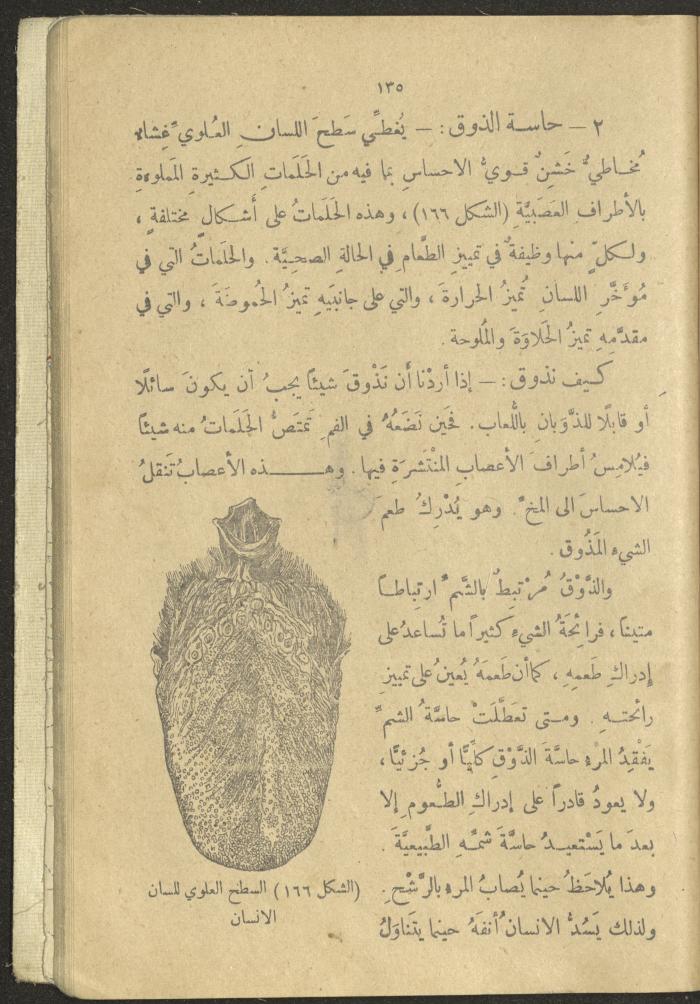 ١٣٥
٢ – حاسة الذوق : – يُغطِّي سَطحَ اللسانِ العُلوي غِشاء
مُخاطيٌّ خَشِنٌ قويُّ الاحساسِ بما فيه من الحَلَماتِ الكثيرةِ المَملوءةِ
بالأطرافِ العَصَبيَّةِ (الشكل ١٦٦) ، وهذه الحَلَماتُ على أَشكالٍ مختلفةٍ ،
ولكلٍّ منها وظيفةٌ في تمييز الطَّعامِ في الحالةِ الصحيَّة . والحلَماتُ التي في
مُوَخَّرِ اللسانِ تُميزُ الحرارةَ ، والتي على جانبَيهِ تميزُ الحُموضَةَ ، والتي في
مقدَّمِهِ تميزُ الحَلاوَةَ والمُلوحة .
كيف نذوق : – إذا أردْنا أَن نَذُوقَ شيئاً يجبُ أن يكونَ سائلًا
أو قابلًا للذَّوَبانِ باللُّعاب . فحَين نَضَعُهُ في الفمِ تَمتَصُّ الحَلَماتُ منه شيئاً
فيُلامِسُ أطرافَ الأعصابِ المنْتشرَةِ فيها . وهـذه الأعصابُ تَنقلُ
الاحساسَ الى المخِّ . وهو يُدْرِكُ طعمَ
الشيءِ المَذُوق .
والذَّوْقُ مُرْتبِطٌ بالشَّمِّ ارتباطاً
متيناً ، فرائحَةُ الشيءِ كثيراً ما تُساعدُ على
إدراكِ طَعمِهِ ، كما أن طَعمَهُ يُعينُ على تمييزِ
رائحتِهِ . ومتى تعَطَّلَتْ حاسَّةُ الشمِّ
يَفْقِدُ المرْءُ حاسَّةَ الذَّوْقِ كلّيًّا أو جُزئيًّا ،
ولا يعودُ قادراً على إدراكِ الطعُومِ إلا
بعدَ ما يَسْتعيدُ حاسَّةَ شمِّهِ الطَّبيعيَّةَ .
وهذا يُلاحَظُ حينما يُصابُ المرءُ بالرَّشْحِ .
ولذلك يَسُدُّ الانسانُ أنفَهُ حينما يتَناوَلُ
(الشكل ١٦٦) السطح العلوي للسان
الانسان